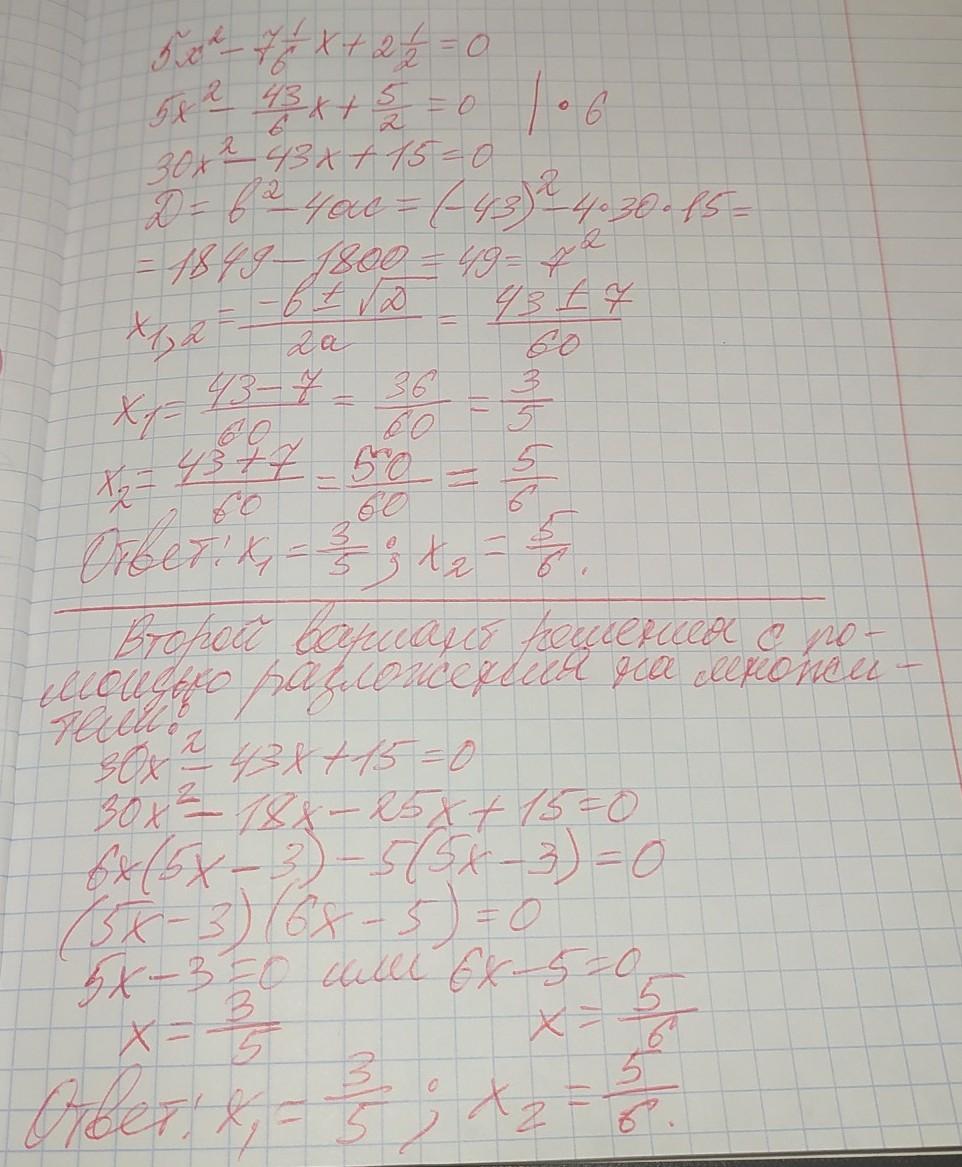 5x² - 7 1/6 x + 2 1/2 = 0
5x² - 43/6 x + 5/2 = 0 | • 6
30x² - 43x + 15 = 0
D = b² - 4ac = (-43)² - 4•30•15 =
= 1849 - 1800 = 49 = 7²
x₁,₂ = (-b ± √D)/2a = (43 ± 7)/60
x₁ = (43 - 7)/60 = 36/60 = 3/5
x₂ = (43 + 7)/60 = 50/60 = 5/6
Ответ: x₁ = 3/5 ; x₂ = 5/6 .
Второй вариант решения с по-
мощью разложения на множи-
тели:
30x² - 43x + 15 = 0
30x² - 18x - 25x + 15 = 0
6x(5x - 3) - 5(5x - 3) = 0
(5x - 3)(6x - 5) = 0
5x - 3 = 0 или 6x - 5 = 0
x = 3/5 x = 5/6
Ответ: x₁ = 3/5 ; x₂ = 5/6 .